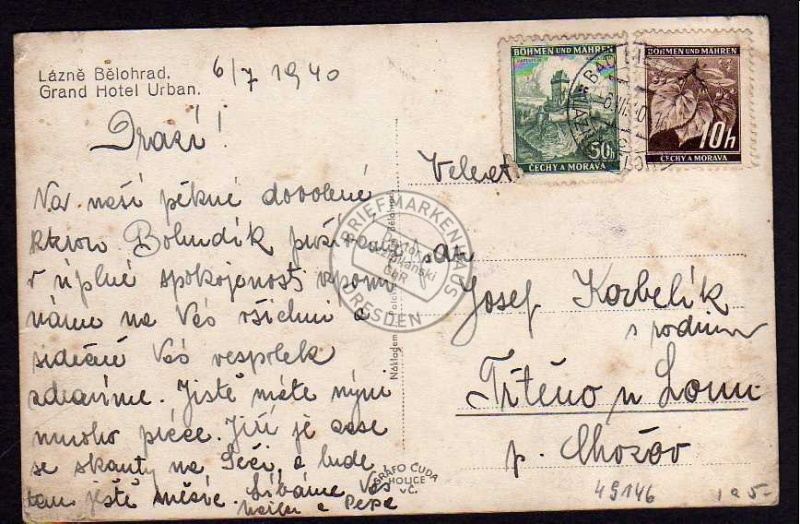 Lázně Bělohrad.
Grand Hotel Urban.
6/7 1940
Drazí!
Na naší pěkné dovolené
kterou Bohudík prožíváme
v úplné spokojenosti vzpomí
náme na Vás všichni a
srdečně Vás vesměs
zdravíme. Jistě máte nyní
mnoho práce. Jiří je zase
se skauty na Seči, a bude
tam ještě měsíc. Líbáme Vás
a Pepa
Nákladem
GRAFO ČUDA
HOLICE
v Č.
BÖHMEN UND MÄHREN
50h
ČECHY A MORAVA
BÖHMEN UND MÄHREN
10h
ČECHY A MORAVA
Velect.
pán
Josef Korbelík
s rodinou
Třtěno u Loun
p. Chožov
49146
BRIEFMARKENHAUS
DRESDEN
GbR